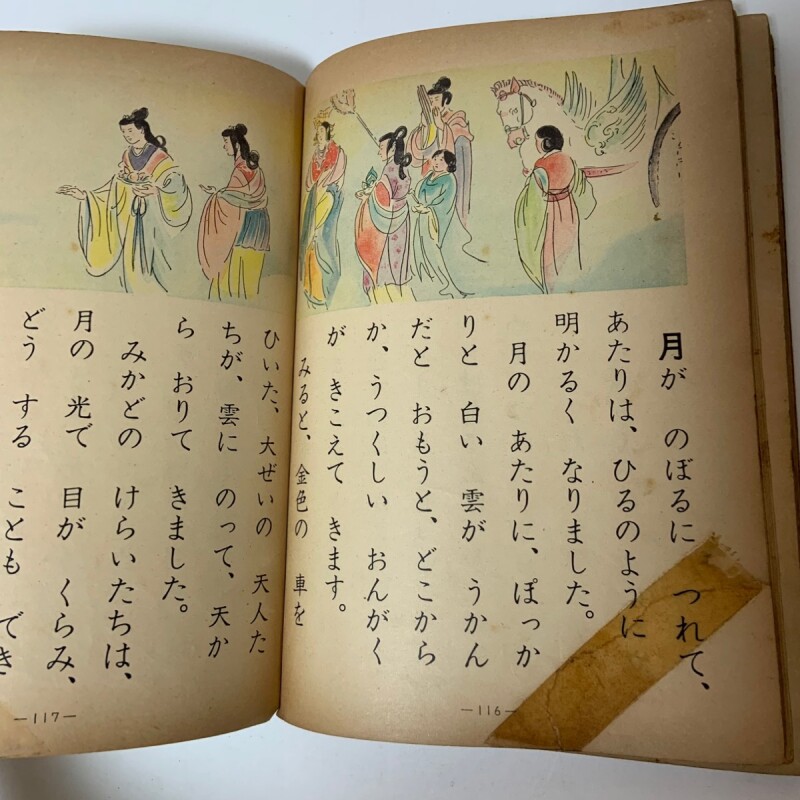 月が のぼるに つれて、
あたりは、ひるのように
明かるく なりました。
月の あたりに、ぽっか
りと 白い 雲が うかん
だと おもうと、どこから
か、うつくしい おんがく
が きこえて きます。
みると、金色の 車を
—116—
ひいた、大ぜいの 天人た
ちが、雲に のって、天か
ら おりて きました。
みかどの けらいたちは、
月の 光で 目が くらみ、
どう する ことも でき
—117—